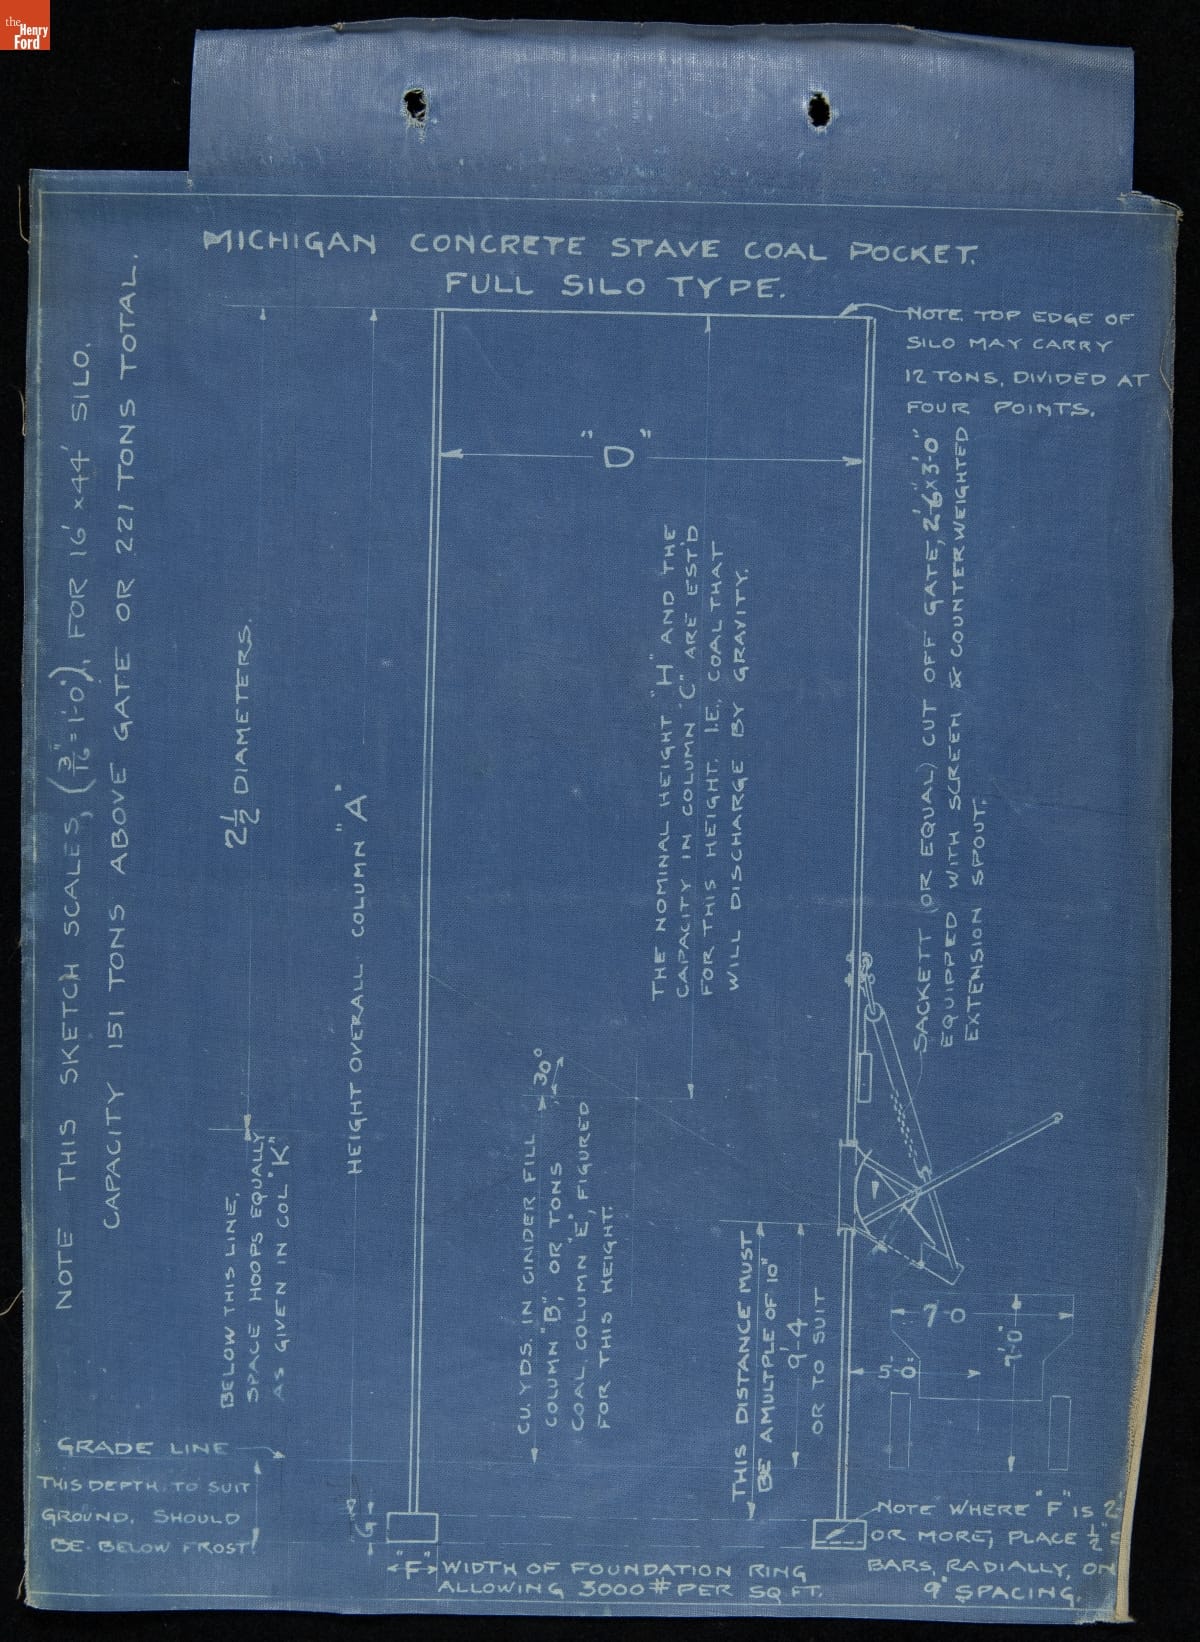 the
Henry
Ford
MICHIGAN CONCRETE STAVE COAL POCKET.
FULL SILO TYPE.
NOTE. TOP EDGE OF
SILO MAY CARRY
12 TONS, DIVIDED AT
FOUR POINTS.
NOTE THIS SKETCH SCALES, (3/16" = 1'-0"), FOR 16' x 44' SILO.
CAPACITY 151 TONS ABOVE GATE OR 221 TONS TOTAL.
2 1/2 DIAMETERS.
BELOW THIS LINE,
SPACE HOOPS EQUALLY
AS GIVEN IN COL "K"
HEIGHT OVERALL. COLUMN "A"
"D"
THE NOMINAL HEIGHT "H" AND THE
CAPACITY IN COLUMN "C" ARE EST'D
FOR THIS HEIGHT. I.E., COAL THAT
WILL DISCHARGE BY GRAVITY.
SACKETT (OR EQUAL) CUT OFF GATE, 2'6" x 3'-0"
EQUIPPED WITH SCREEN & COUNTERWEIGHTED
EXTENSION SPOUT.
30°
CU. YDS. IN CINDER FILL
COLUMN "B", OR TONS
COAL, COLUMN "E", FIGURED
FOR THIS HEIGHT.
THIS DISTANCE MUST
BE A MULTPLE OF 10"
9'-4
OR TO SUIT
7'-0
7'-0"
5'-0"
GRADE LINE
THIS DEPTH TO SUIT
GROUND. SHOULD
BE BELOW FROST.
"G"
"F" WIDTH OF FOUNDATION RING
ALLOWING 3000# PER SQ FT.
NOTE WHERE "F" IS 2'
OR MORE, PLACE 1/2" S
BARS, RADIALLY, ON
9" SPACING.